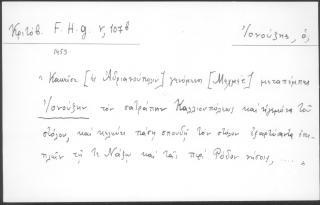 Κριτόβ. F.H.G. V, 107β
Ἰονούζης, ὁ,
1453
" Καὶ εὐθὺς [ἐν Ἀδριανουπόλει] γενόμενος [Μεχμὲτ] μεταπέμπεται
Ἰονούζην τὸν σατράπην Καλλιουπόλεως καὶ ἡγεμόνα τοῦ
στόλου, καὶ κελεύει πάσῃ σπουδῇ τὸν στόλον ἐξαρτύσαντα ἐπι-
πλεῖν τῇ τε Νάξῳ καὶ ταῖς περὶ Ῥόδον νήσοις, .... "